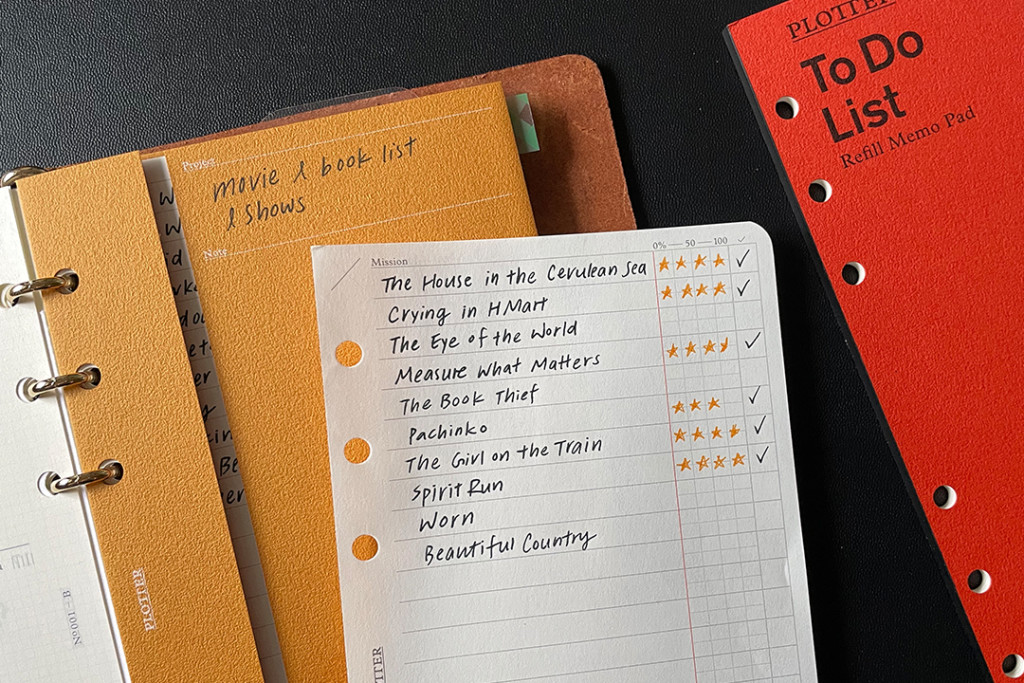 PLOTTER
To Do
List
Refill Memo Pad
Project
movie & book list
& shows
Note
Mission
0% — 50 — 100 ✓
The House in the Cerulean Sea ★★★★ ✓
Crying in H Mart ★★★★ ✓
The Eye of the World
Measure What Matters ✓
The Book Thief
Pachinko ★★★ ✓
The Girl on the Train ✓
Spirit Run ★★★★ ✓
Worn
Beautiful Country
PLOTTER
PLOTTER
Nº001-B